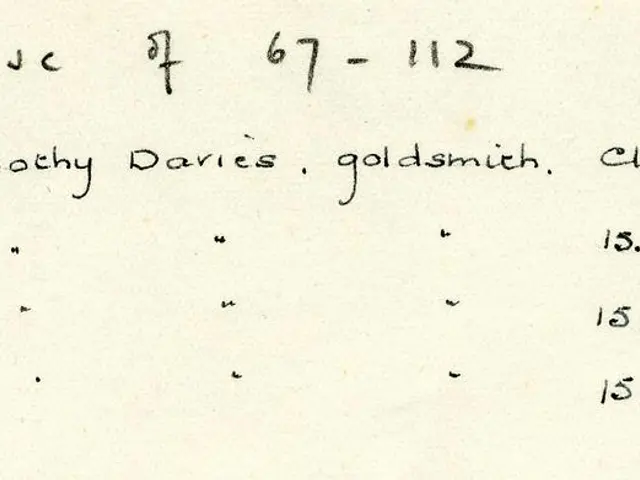 of 67-112
othy Davies. goldsmith. Cl
" " " 15.
" " " 15
" " " 15